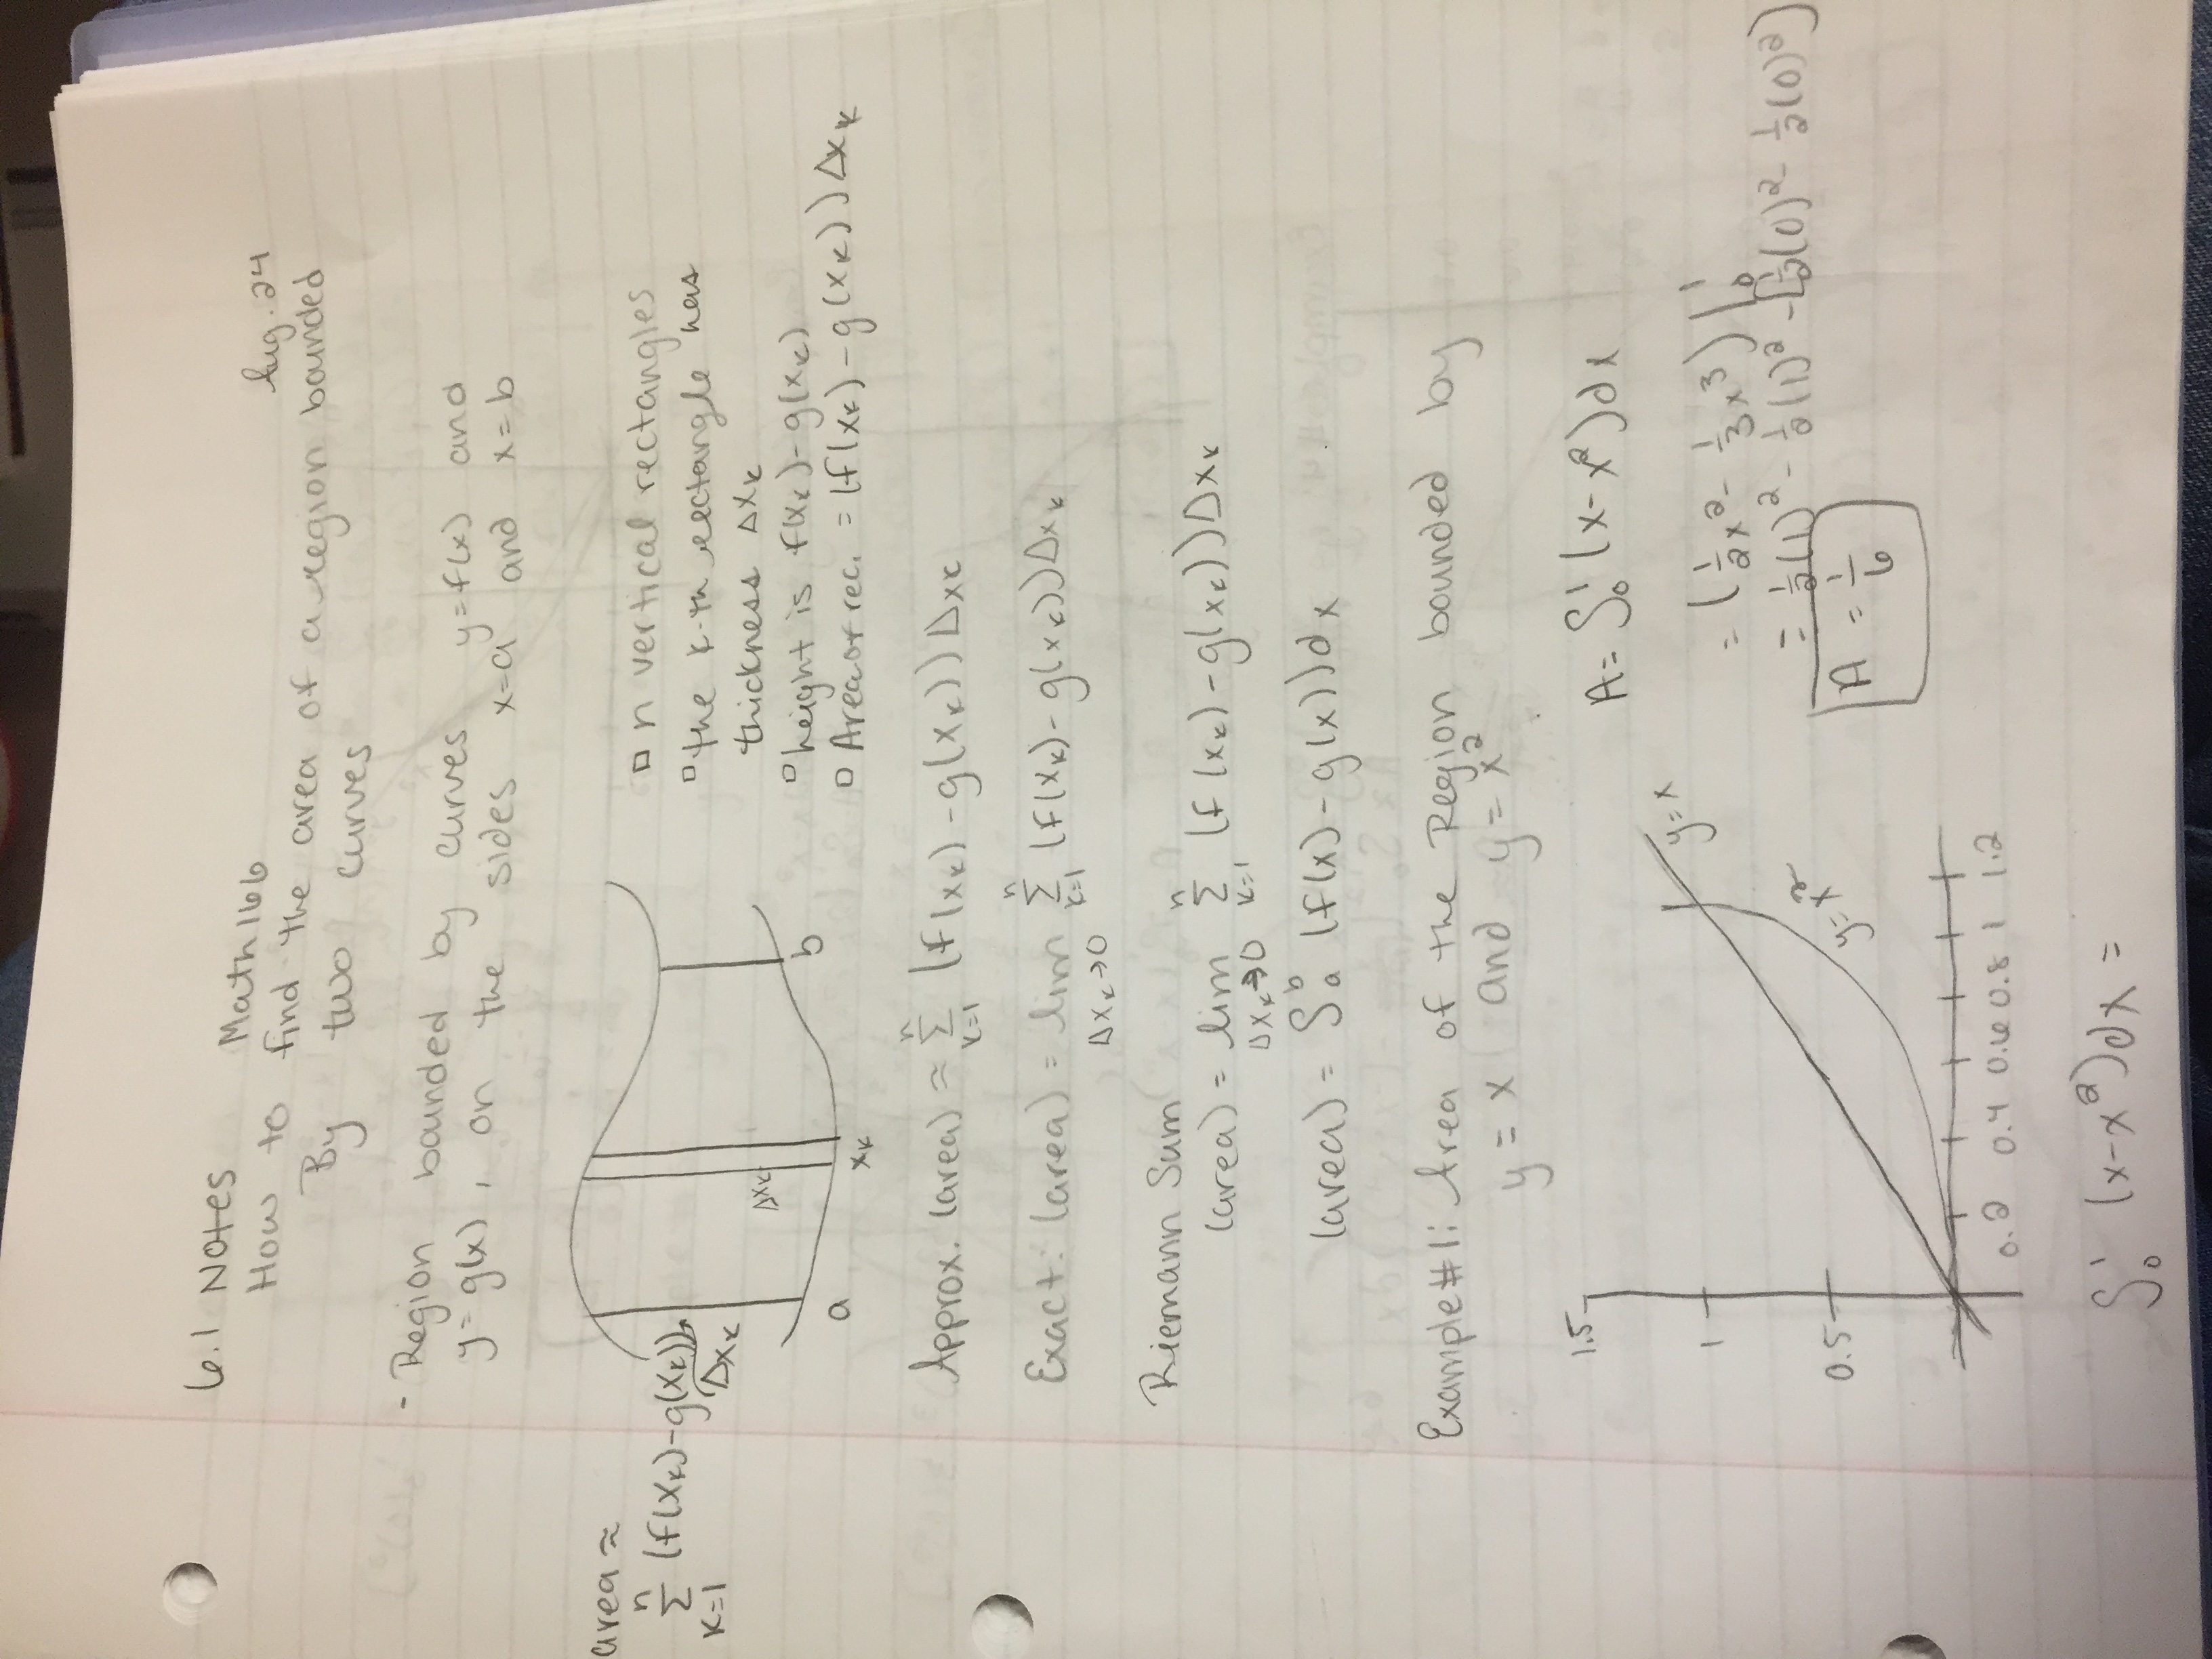 6.1 Notes Math166 Aug. 24
How to find the area of a region bounded
By two curves
- Region bounded by curves y=f(x) and
y=g(x), on the sides x=a and x=b
area ≈
n
∑ (f(xₖ)-g(xₖ))
k=1 Δxₖ
Δxₖ
a xₖ b
▫ n vertical rectangles
▫ the k-th rectangle has
thickness Δxₖ
▫ height is f(xₖ)-g(xₖ)
▫ Area of rec. = (f(xₖ)-g(xₖ))Δxₖ
Approx. (area) ≈ ∑ⁿₖ₌₁ (f(xₖ)-g(xₖ))Δxₖ
Exact: (area) = lim ∑ⁿₖ₌₁ (f(xₖ)-g(xₖ))Δxₖ
Δxₖ→0
Riemann Sum
(area) = lim ∑ⁿₖ₌₁ (f(xₖ)-g(xₖ))Δxₖ
Δxₖ→0
(area) = ∫ₐᵇ (f(x)-g(x))dx
Example#1: Area of the Region bounded by
y=x and y=x²
1.5
1
0.5
y=x
y=x²
0.2 0.4 0.6 0.8 1 1.2
A = ∫₀¹ (x-x²)dx
= (½x² - ⅓x³)|₀¹
= ½(1)² - ½(1)² - [½(0)² - ½(0)²)
A = 1/6
∫₀¹ (x-x²)dx =